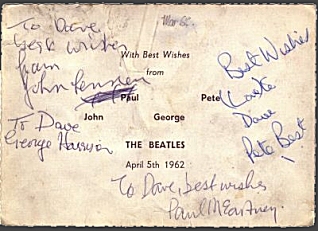 To Dave
best wishes
from
John Lennon
To Dave
George Harrison
With Best Wishes
from
Paul Pete
John George
THE BEATLES
April 5th 1962
Best Wishes
Dave
Pete Best
To Dave, best wishes
Paul McCartney.